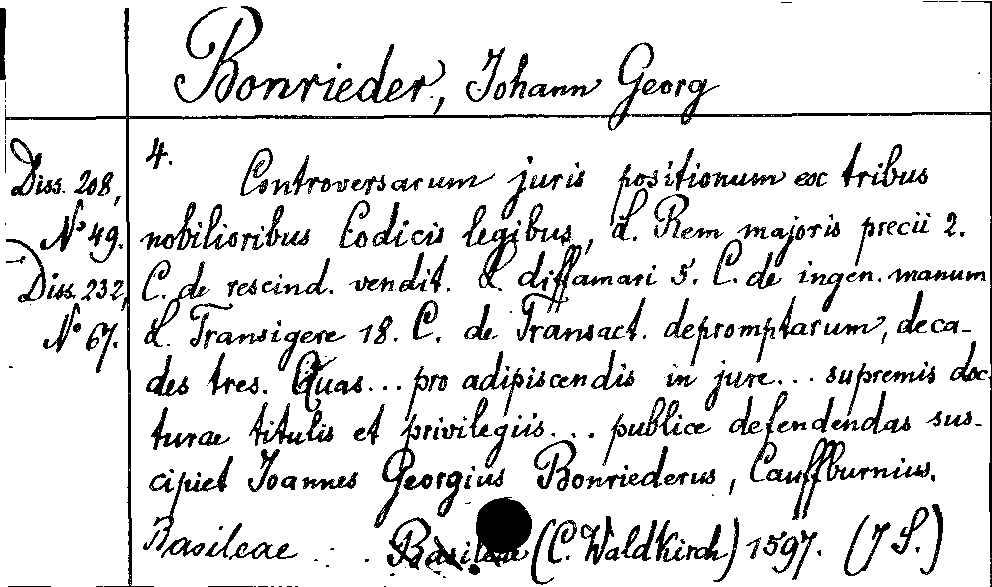 Bonrieder, Johann Georg
Diss. 208,
No 49.
Diss. 232,
No 67.
4.
Controversarum juris positionum ex tribus
nobilioribus Codicis legibus, L. Rem majoris precii 2.
C. de rescind. vendit. L. diffamari 5. C. de ingen. manum
L. Transigere 18. C. de Transact. depromptarum, deca-
des tres. Quas... pro adipiscendis in jure... supremis doc
turae titulis et privilegiis... publice defendendas sus-
cipiet Joannes Georgius Bonriederus, Cauffburnius.
Basileae ... Basileae (C. Waldkirch) 1597. (J S.)